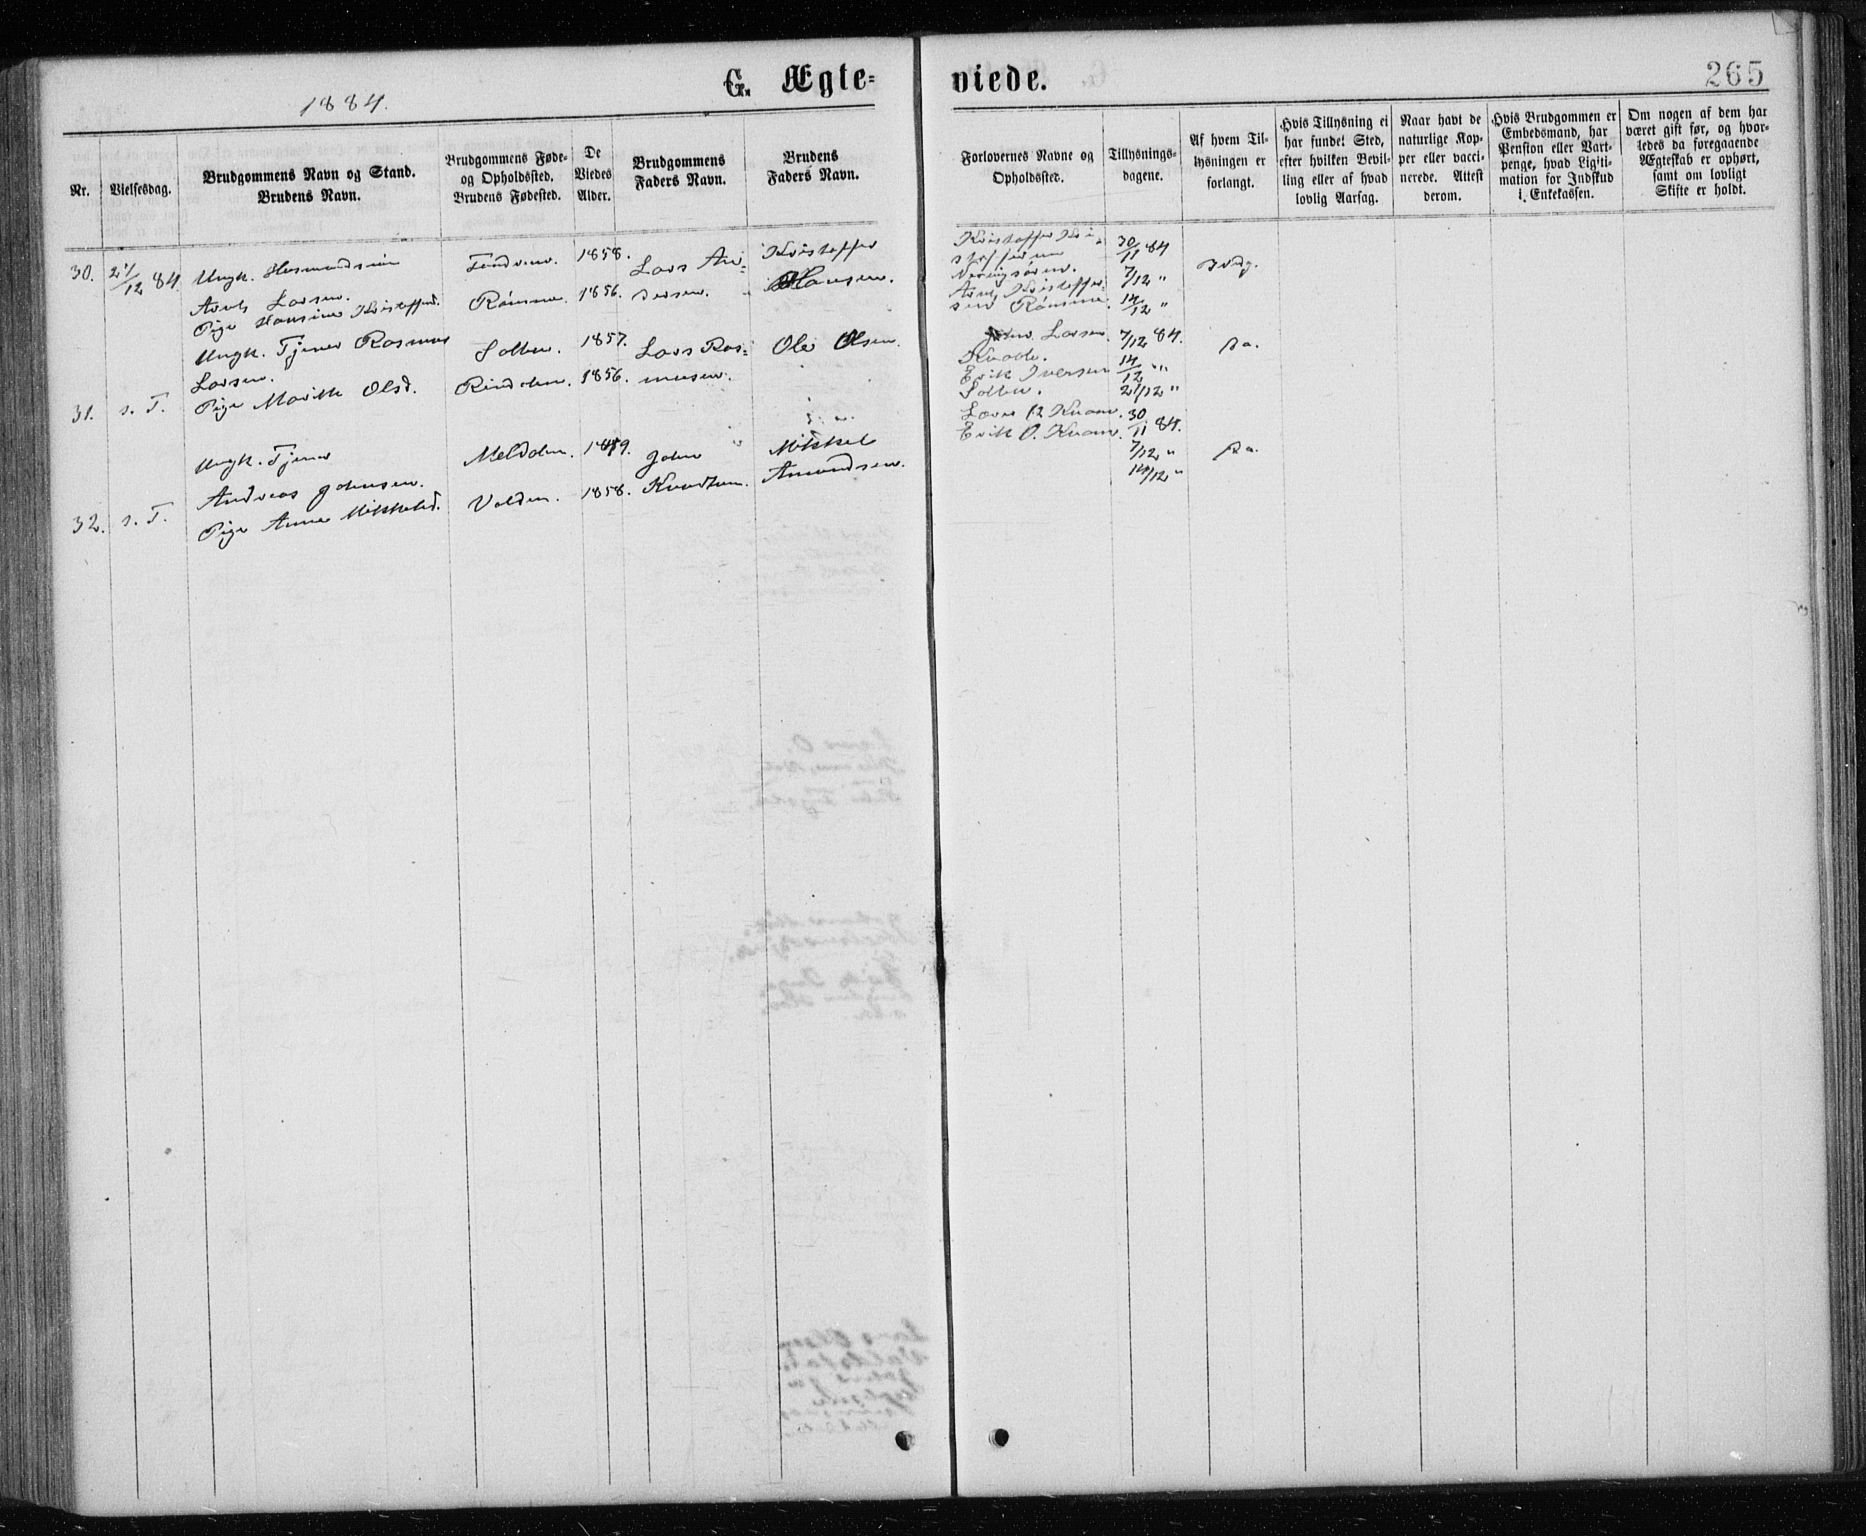 1884.
G. Ægte=
viede.
265
Nr.
Vielsesdag.
Brudgommens Navn og Stand.
Brudens Navn.
Brudgommens Føde-
og Opholdssted.
Brudens Fødested.
De
Viedes
Alder.
Brudgommens
Faders Navn.
Brudens
Faders Navn.
Forlovernes Navne og
Opholdssted.
Tillysnings-
dagene.
Af hvem Til-
lysningen er
forlangt.
Hvis Tillysning ei
har fundet Sted,
efter hvilken Bevil-
ling eller af hvad
lovlig Aarsag.
Naar havt de
naturlige Kop-
per eller vacci-
nerede. Attest
derom.
Hvis Brudgommen er
Embedsmand, har
Pension eller Vart-
penge, hvad Ligiti-
mation for Indskud
i Enkekassen.
Om nogen af dem har
været gift før, og hvor-
ledes da foregaaende
Ægteskab er ophørt,
samt om lovligt
Skifte er holdt.
30. 27/12 84
Ungk. Husmandssøn
Arnt Larsen.
Pige Hansine Kristoffersd.
Rømme
1858.
1856.
Lars An=
dersen.
Kristoffer
Hansen.
Kristoffer Kri=
stoffersen
Arnt Kristoffer=
sen Rømme
30/11 84
7/12 "
14/12 "
Brudg.
31. s. T.
Ungk. Tjener Rasmus
Larsen.
Pige Marit Olsd.
Solbu.
Rindalen.
1857.
1856.
Lars Ras=
musen.
Ole Olsen.
John Larsen
Kvaale.
Erik Iversen
Solbu.
7/12 84.
14/12 "
21/12 "
s a.
32. s. T.
Ungk. Tjener
Andreas Johnsen.
Pige Anne Mikkelsd.
Meldalen.
Volden.
1859.
1858.
John
Mikkel
Amundsen.
Lars E. Kvam.
Erik O. Kvam.
30/11 84.
7/12 "
14/12 "
s a.